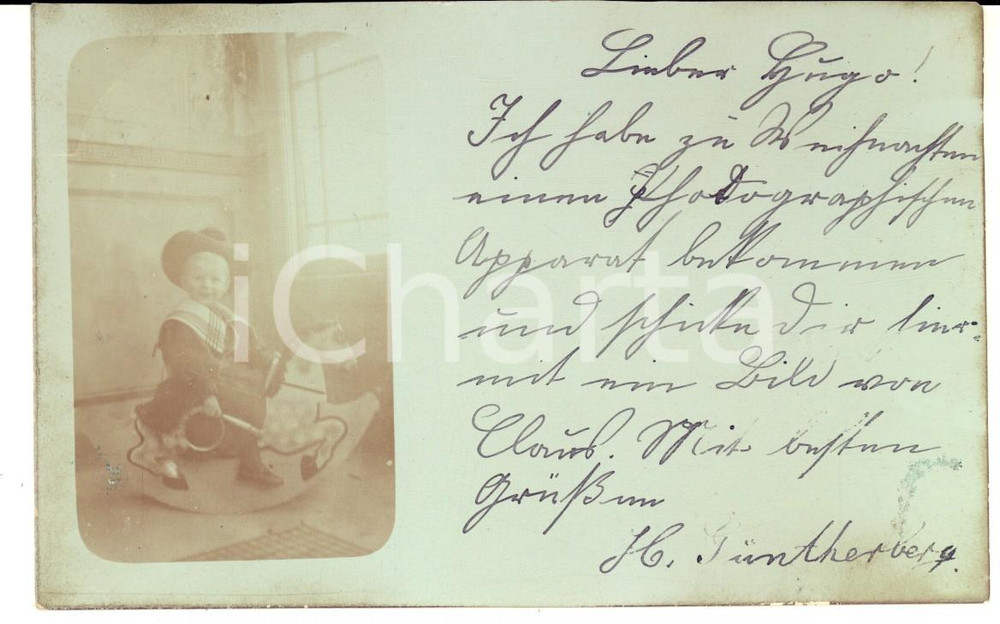 Lieber Hugo!
Ich habe zu Weihnachten
einen Photographischen
Apparat bekommen
und schicke dir hier-
mit ein Bild von
Claus. Mit besten
Grüßen
H. Güntherberg.
iCharta